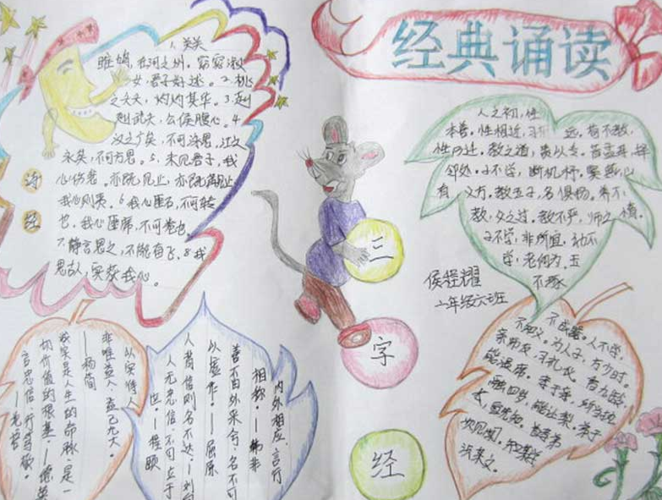 经典诵读
1.关关
雎鸠,在河之洲,窈窕淑
女,君子好逑。2.桃
之夭夭,灼灼其华。3.赳
赳武夫,公侯腹心。4.
汉之广矣,不可泳思,江之
永矣,不可方思。5.未见君子,我
心伤悲。亦既见止,亦既觏止
我心则夷。6.我心匪石,不可转
也,我心匪席,不可卷也
7.静言思之,不能奋飞。8.我
思古人,实获我心。
诗
经
三
字
经
人之初,性
本善。性相近,习 远。苟不教,
性乃迁。教之道,贵以专。昔孟母,择
邻处。子不学,断机杼。窦燕山
有义方。教五子,名俱扬。养不
教,父之过。教不严,师之惰。
子不学,非所宜。幼不
学,老何为。玉
不琢
侯程耀
二年级六班
不成器。人不学,
不知义。为人子,方少时。
亲师友,习礼仪。香九龄,
能温席。孝于亲,所当执
融四岁,能让梨。弟于
长,宜先知。首孝弟
次见闻。知某数
识某文。
内外相应,言行
相称。——韩非
善不由外来兮,名不可
以虚作。——屈原
人背信则名不达。——刘向
人无忠信,不可立于
世。——程颐
以实待人,
非惟益人,益己尤大。
——杨简